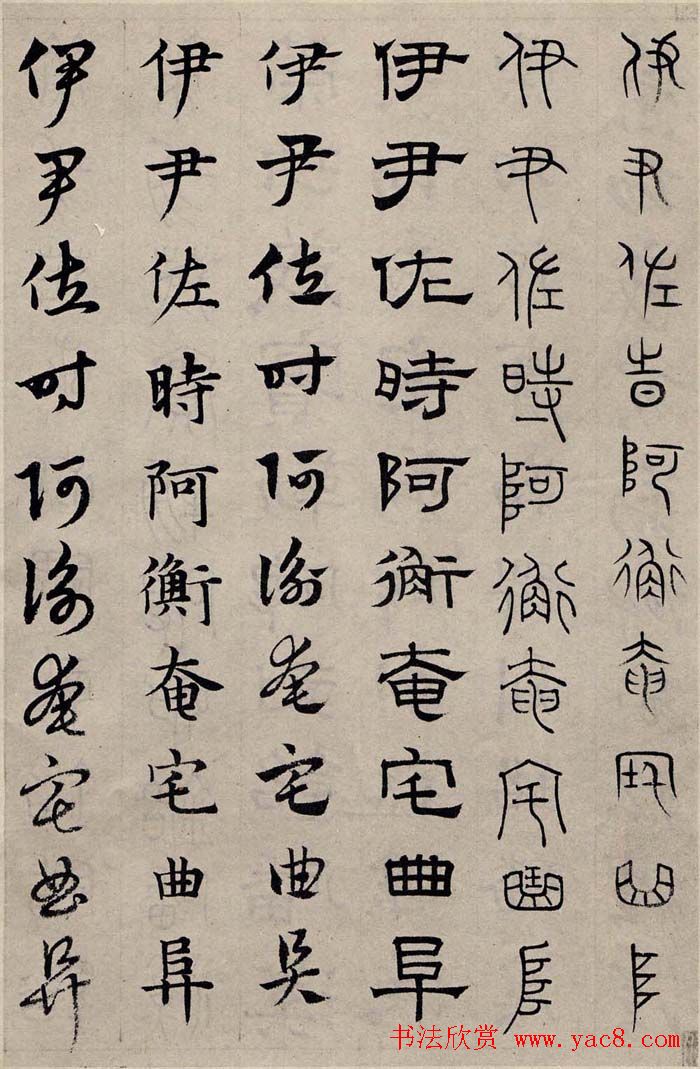 伊尹佐時阿衡奄宅曲阜
伊尹佐時阿衡奄宅曲阜
伊尹佐時阿衡奄宅曲阜
伊尹佐時阿衡奄宅曲阜
伊尹佐時阿衡奄宅曲阜
伊尹佐時阿衡奄宅曲阜
书法欣赏 www.yac8.com